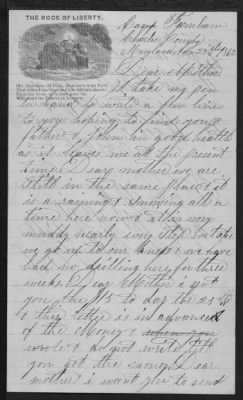 THE BOOK OF LIBERTY.
Camp Farnham
Charles County
Maryland Jan 23th 1862
Dear Mother
I take my pen
in hand to write a few lines
to you hoping to find you &
father & John in good health
as it leaves me at the present
time Dear mother we are
still in the same place & it
is a raining & snowing all a
time here now & it is very
muddy nearly every step we take
we go up to our knees & we have
had no drilling here for three
weeks Dear Mother i got
you the $15 to day the 23
& this letter is in advanced
of the Money & when you
wrote & do not write till
you get the money Dear
mother i want you to send